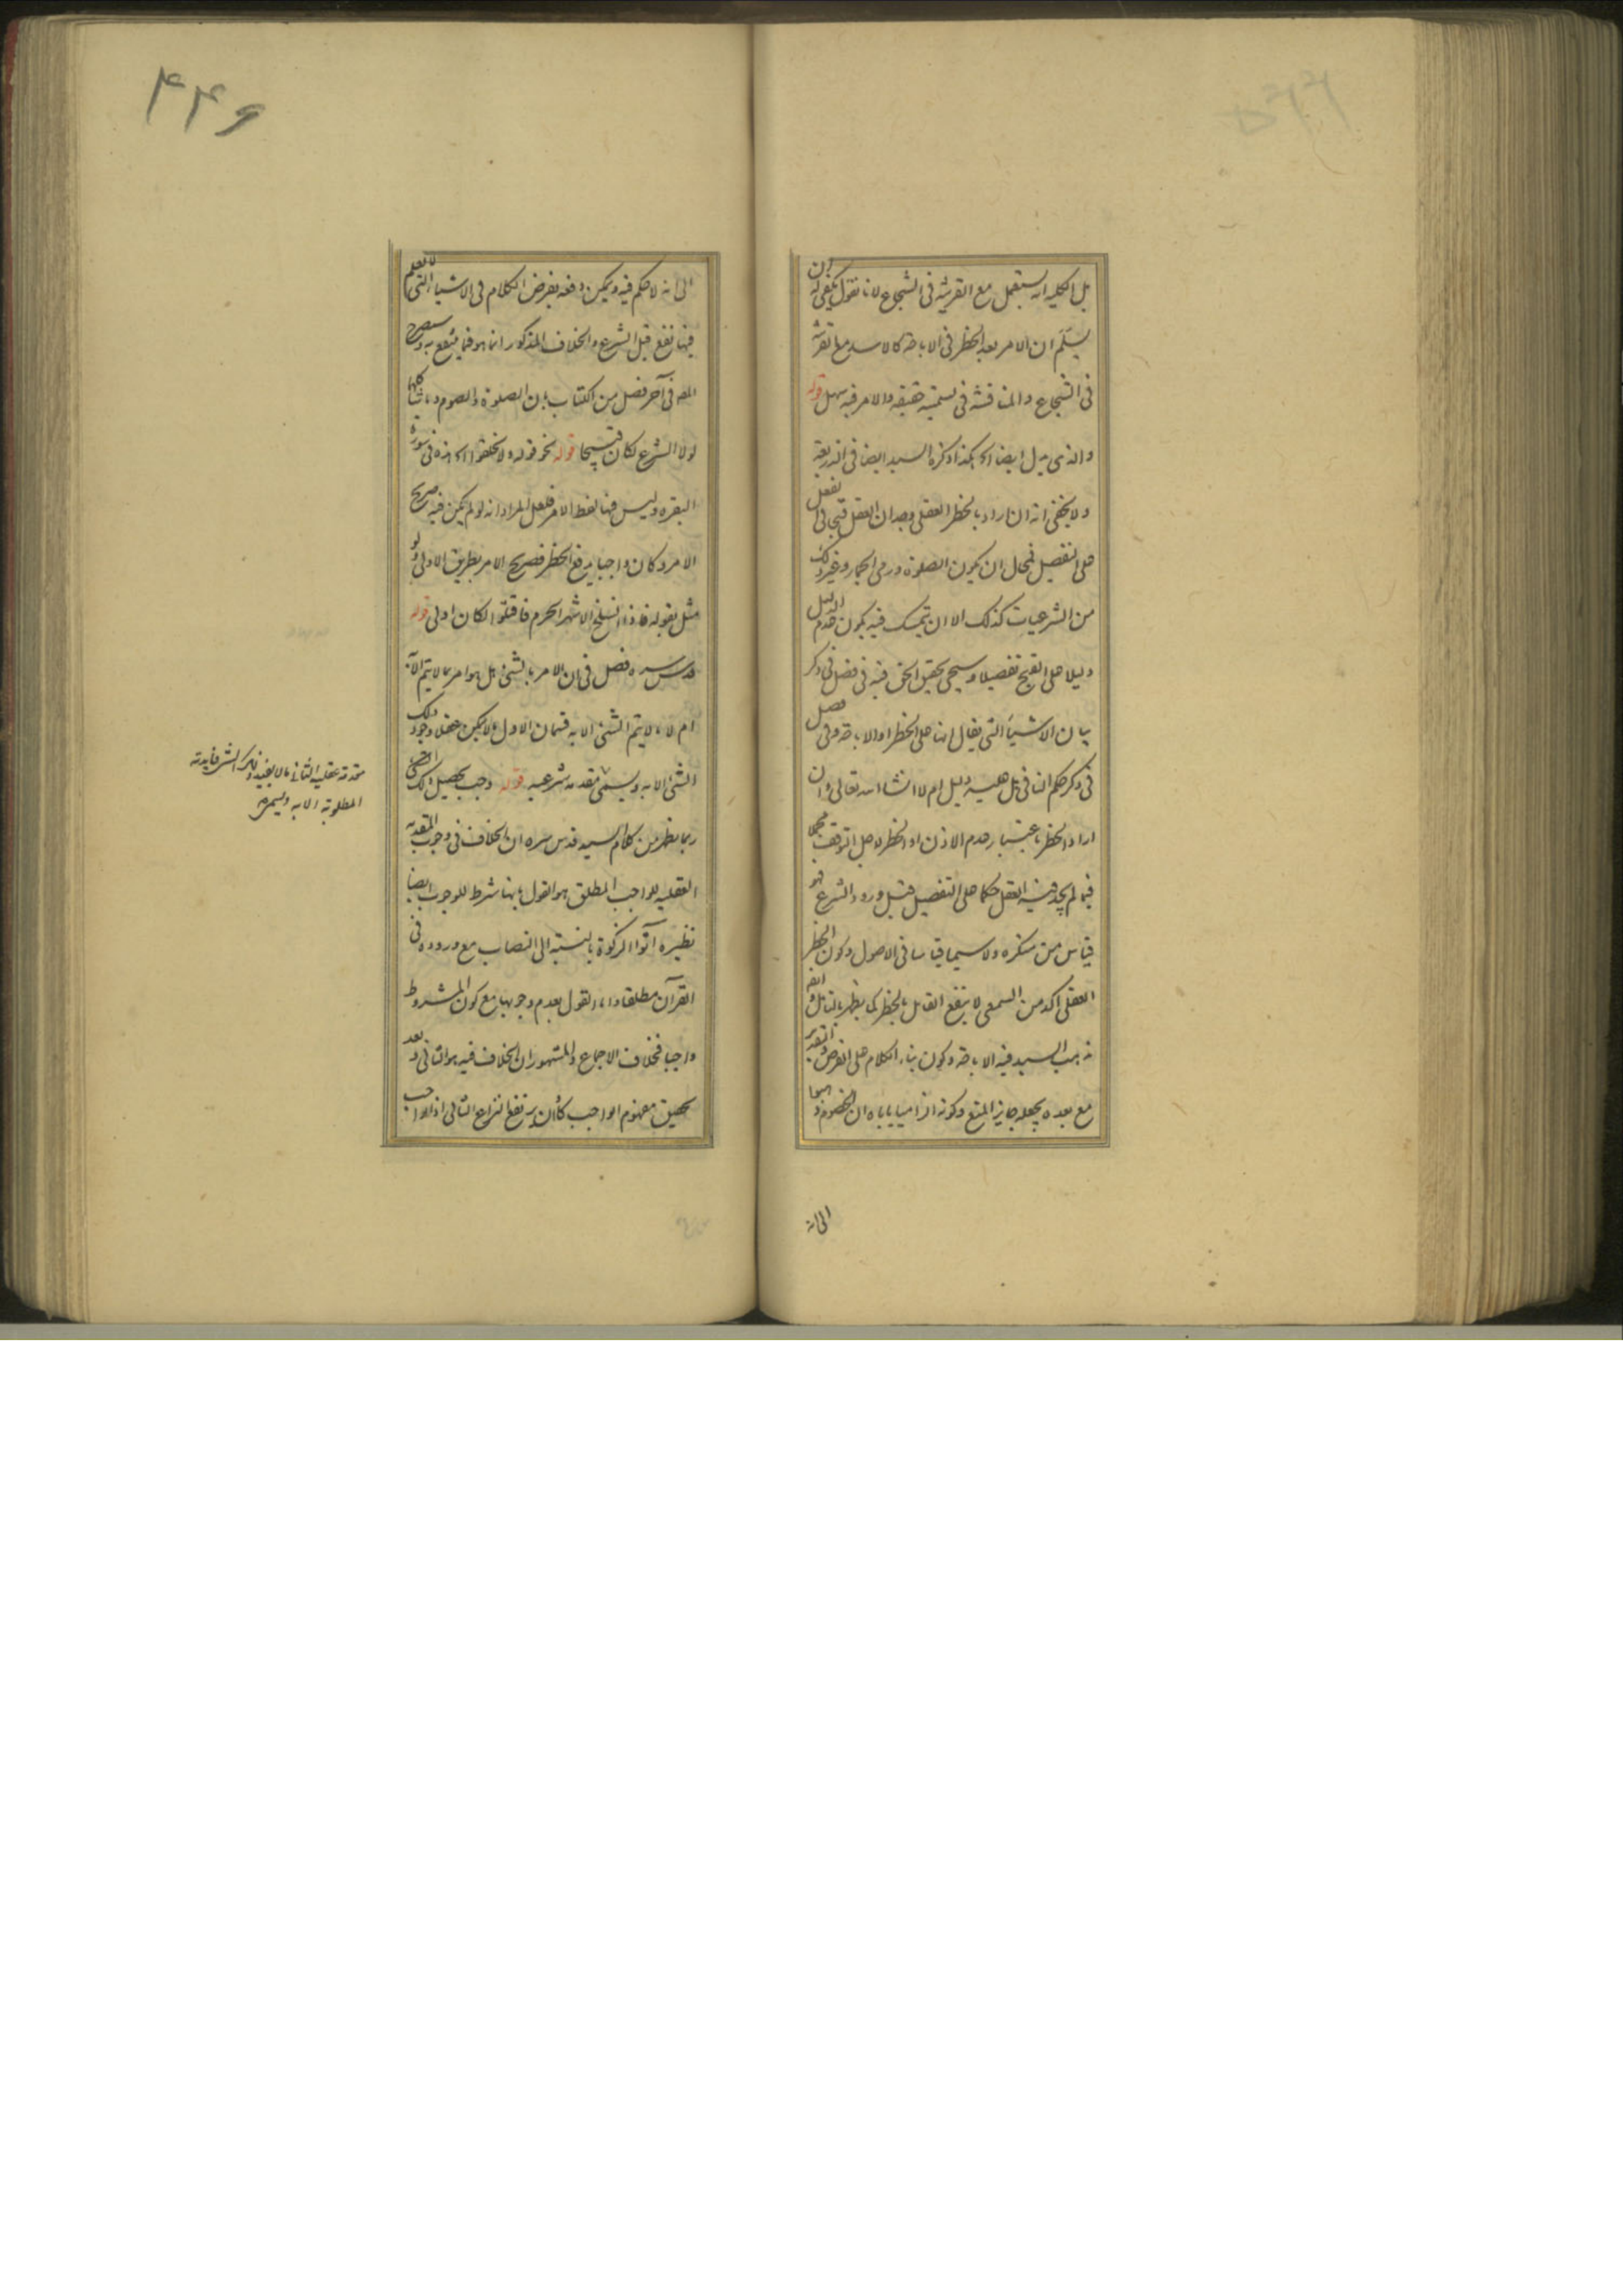 بل الكليه انه يستعمل مع القرينة فى الشجاع لانا نقول يكفى له ان
يسلم ان الامر بعد الحظر فى الاباحة كالاسد مع قرينة
فى الشجاع والمناقشة فى تسميته حقيقه والامر فيه سهل قوله
والذى يدل ايضا الخ هكذا ذكره السيد ايضا فى الذريعة
ولا يخفى انه ان اراد بالحظر العقلى وجدان العقل قبحا فى الفعل
على التفصيل فمحال ان يكون الصلوة ورمى الجمار وغير ذلك
من الشرعيات كذلك الا ان يتمسك فيه بكون عدم الدليل
دليلا على القبح تفصيلا وسيجئ تحقيق الحق فيه فى فصل فى ذكر
بيان الاشياء التى يقال انها على الحظر او الاباحة وفى فصل
فى ذكر حكم النافى هل عليه دليل ام لا انشا الله تعالى وان
اراد الحظر باعتبار عدم الاذن او الحظر لاجل التوقف
فيما لم يجد فيه العقل حكما على التفصيل قبل ورود الشرع فهو
قياس من منكره ولا سيما قياسا فى الاصول وكون الحظر
العقلى اكد من السمعى لا ينفع القائل بالحظر كما يظهر بالتامل
مذهب السيد فيه الاباحة وكون بناء الكلام على الفرض و التقدير
مع بعده يجعله جايز المنع وكونه الزاميا ياباه ان الخصوم
الى انه
٤٤٦
الى انه لا حكم فيه ويمكن دفعه بفرض الكلام فى الاشيا التى لا نعلم
فيها نفع قبل الشرع والخلاف المذكور انما هو فيما ينتفع به وسيصرح
المص فى آخر فصل من الكتاب بان الصلوة والصوم وما شاكلها
لولا الشرع لكان قبيحا قوله نحو قوله ولا تحلقوا الخ هذه فى سورة
البقره وليس فيها لفظ الامر فلعل المراد انه لو لم يكن فيه صريح
الامر وكان واجبا يرفع الحظر فصريح الامر بطريق الاولى ولو
مثل بقوله فاذا انسلخ الاشهر الحرم فاقتلوا لكان اولى قوله
قدس سره فصل فى ان الامر بالشئ هل هو امر بما لا يتم الا به
ام لا ما لا يتم الشئ الا به قسمان الاول ما لا يمكن عقلا وجود ذلك
الشئ الا به ويسمى مقدمه شرعيه قوله وجب تحصيل ذلك الشئ
ربما يظهر من كلام السيد قدس سره ان الخلاف فى وجوب المقدمه
العقليه للواجب المطلق هو القول بانها شرط للوجوب ايضا
نظيره آتوا الزكوة بالنسبة الى النصاب مع وروده فى
القرآن مطلقا واما القول بعدم وجوبها مع كون المشروط
واجبا فخلاف الاجماع والمشهور ان الخلاف فيه هو الثانى وبعد
تحقيق مفهوم الواجب كأن يرتفع النزاع الثانى اذ الواجب
مقدمة عقلية الثانى ما لا يفيد ذلك الشئ فايدته
المطلوبة الا به ويسمى